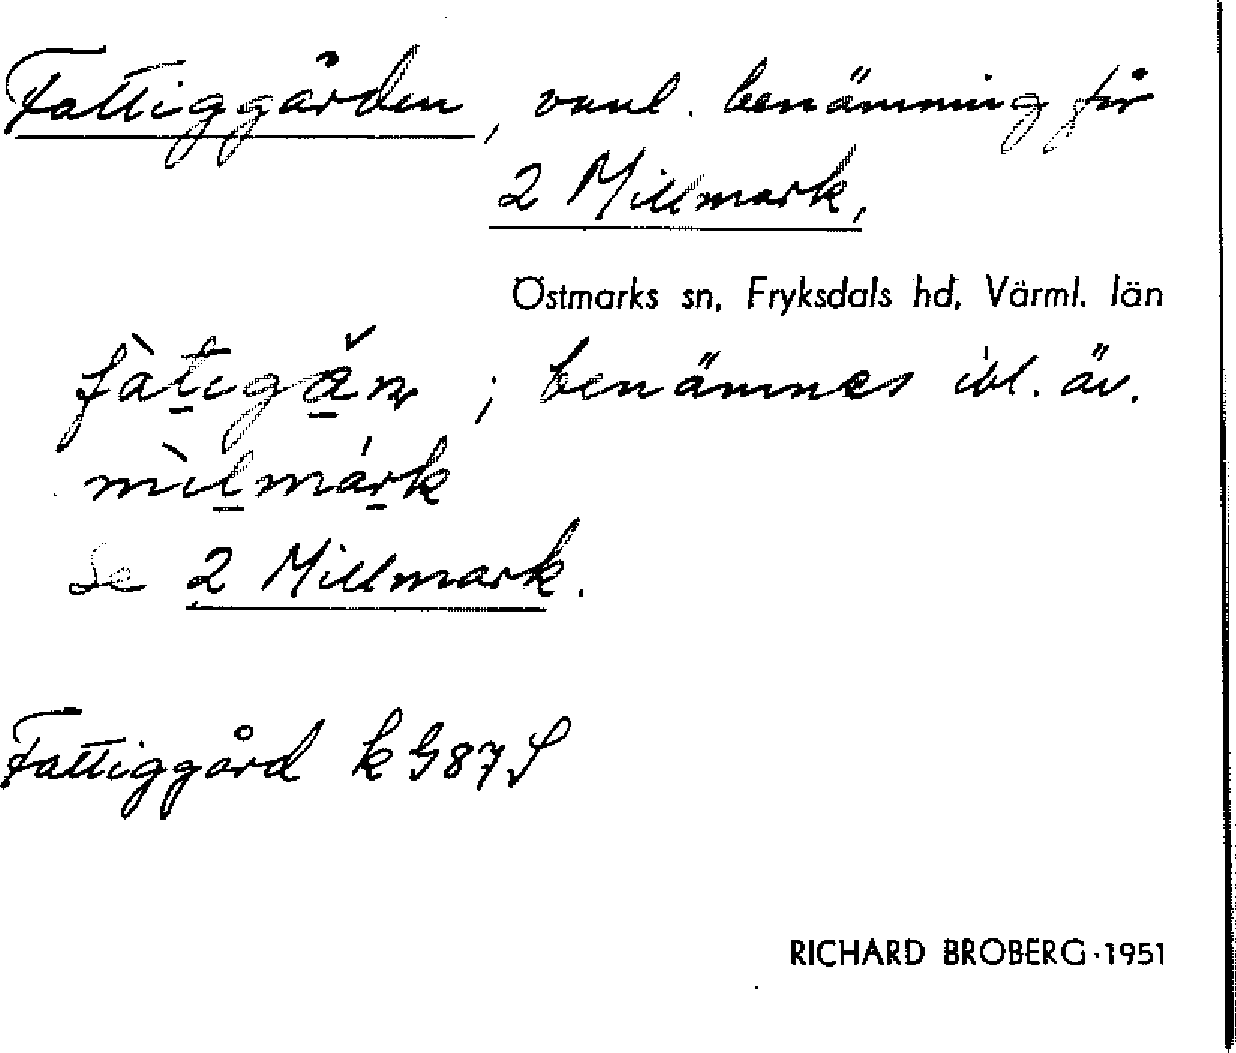 Fattiggården, vanl. benämning för
2 Millmark,
Östmarks sn, Fryksdals hd, Värml. län
fàtigǎn ; benämnes ibl. äv.
mìlmárk
Se 2 Millmark.
Fattiggård k G87 S
RICHARD BROBERG·1951